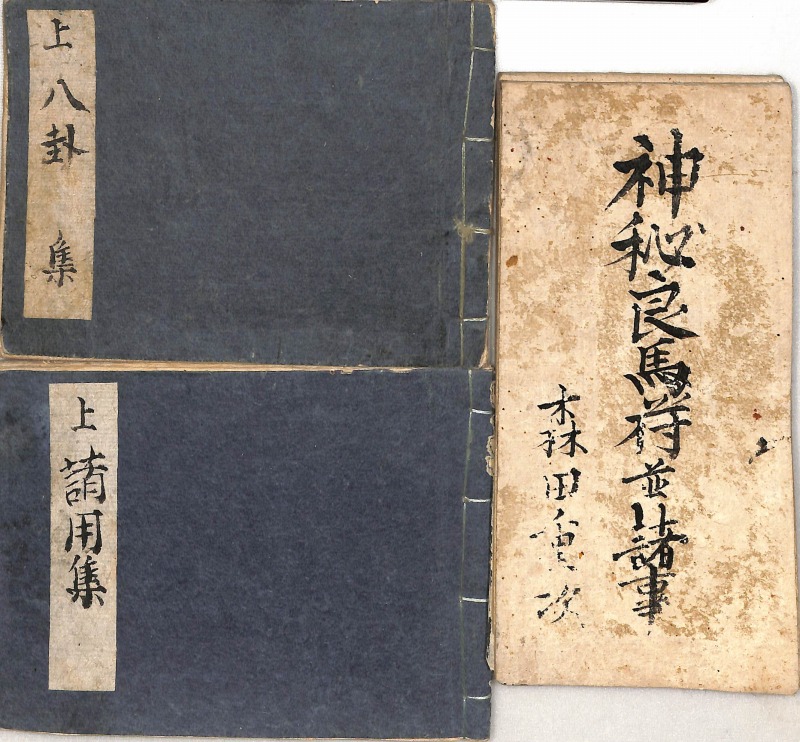 上 八卦 集
上 請用集
神秘良馬符並諸事
森田重次
上